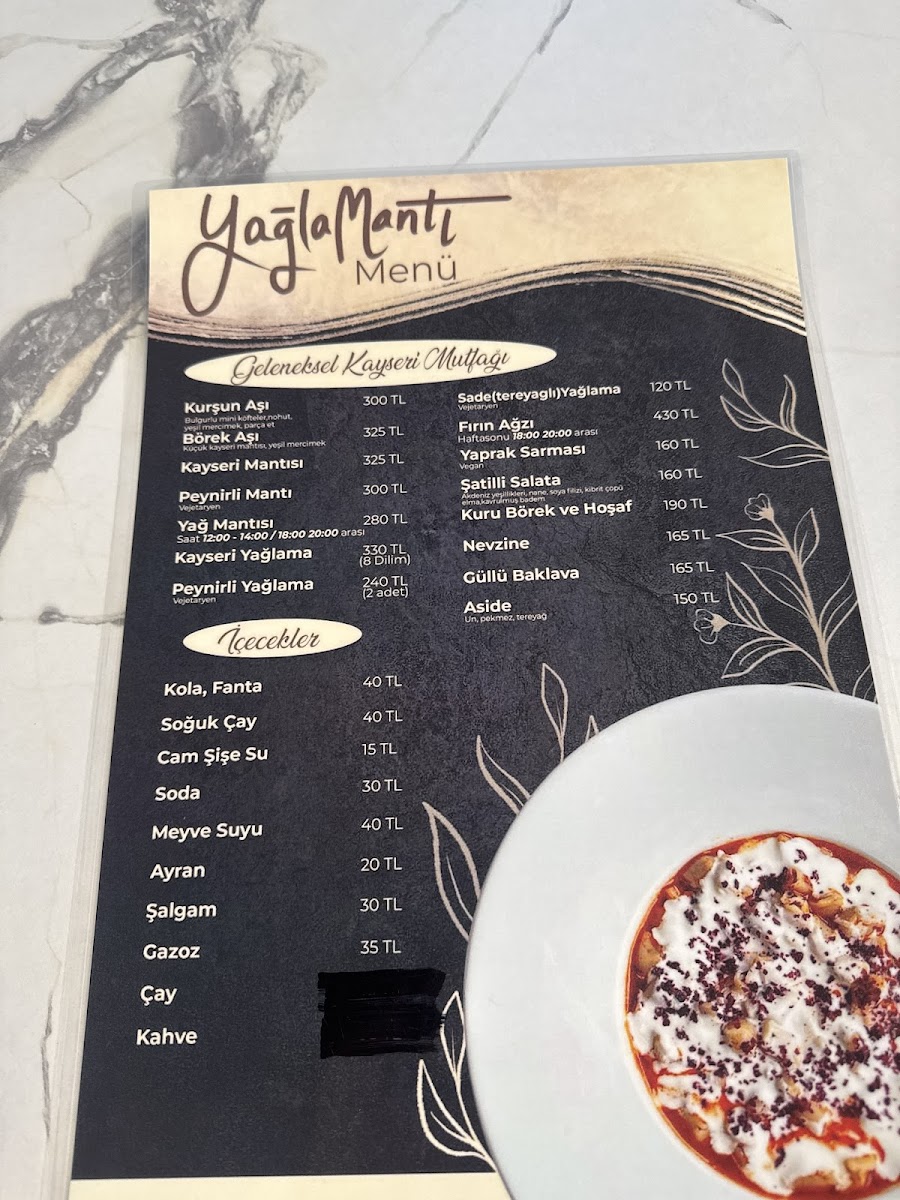 YağlaMantı
Menü
Geleneksel Kayseri Mutfağı
Kurşun Aşı 300 TL
Bulgurlu mini köfteler,nohut,
yeşil mercimek, parça et
Börek Aşı 325 TL
Küçük kayseri mantısı, yeşil mercimek
Kayseri Mantısı 325 TL
Peynirli Mantı 300 TL
Vejetaryen
Yağ Mantısı 280 TL
Saat 12:00 - 14:00 / 18:00 20:00 arası
Kayseri Yağlama 330 TL
(8 Dilim)
Peynirli Yağlama 240 TL
Vejetaryen (2 adet)
Sade(tereyaglı)Yağlama 120 TL
Vejetaryen
Fırın Ağzı 430 TL
Haftasonu 18:00 20:00 arası
Yaprak Sarması 160 TL
Vegan
Şatilli Salata 160 TL
Akdeniz yeşillikleri, nane, soya filizi, kibrit çöpü
elma,kavrulmuş badem
Kuru Börek ve Hoşaf 190 TL
Nevzine 165 TL
Güllü Baklava 165 TL
Aside 150 TL
Un, pekmez, tereyağ
İçecekler
Kola, Fanta 40 TL
Soğuk Çay 40 TL
Cam Şişe Su 15 TL
Soda 30 TL
Meyve Suyu 40 TL
Ayran 20 TL
Şalgam 30 TL
Gazoz 35 TL
Çay
Kahve